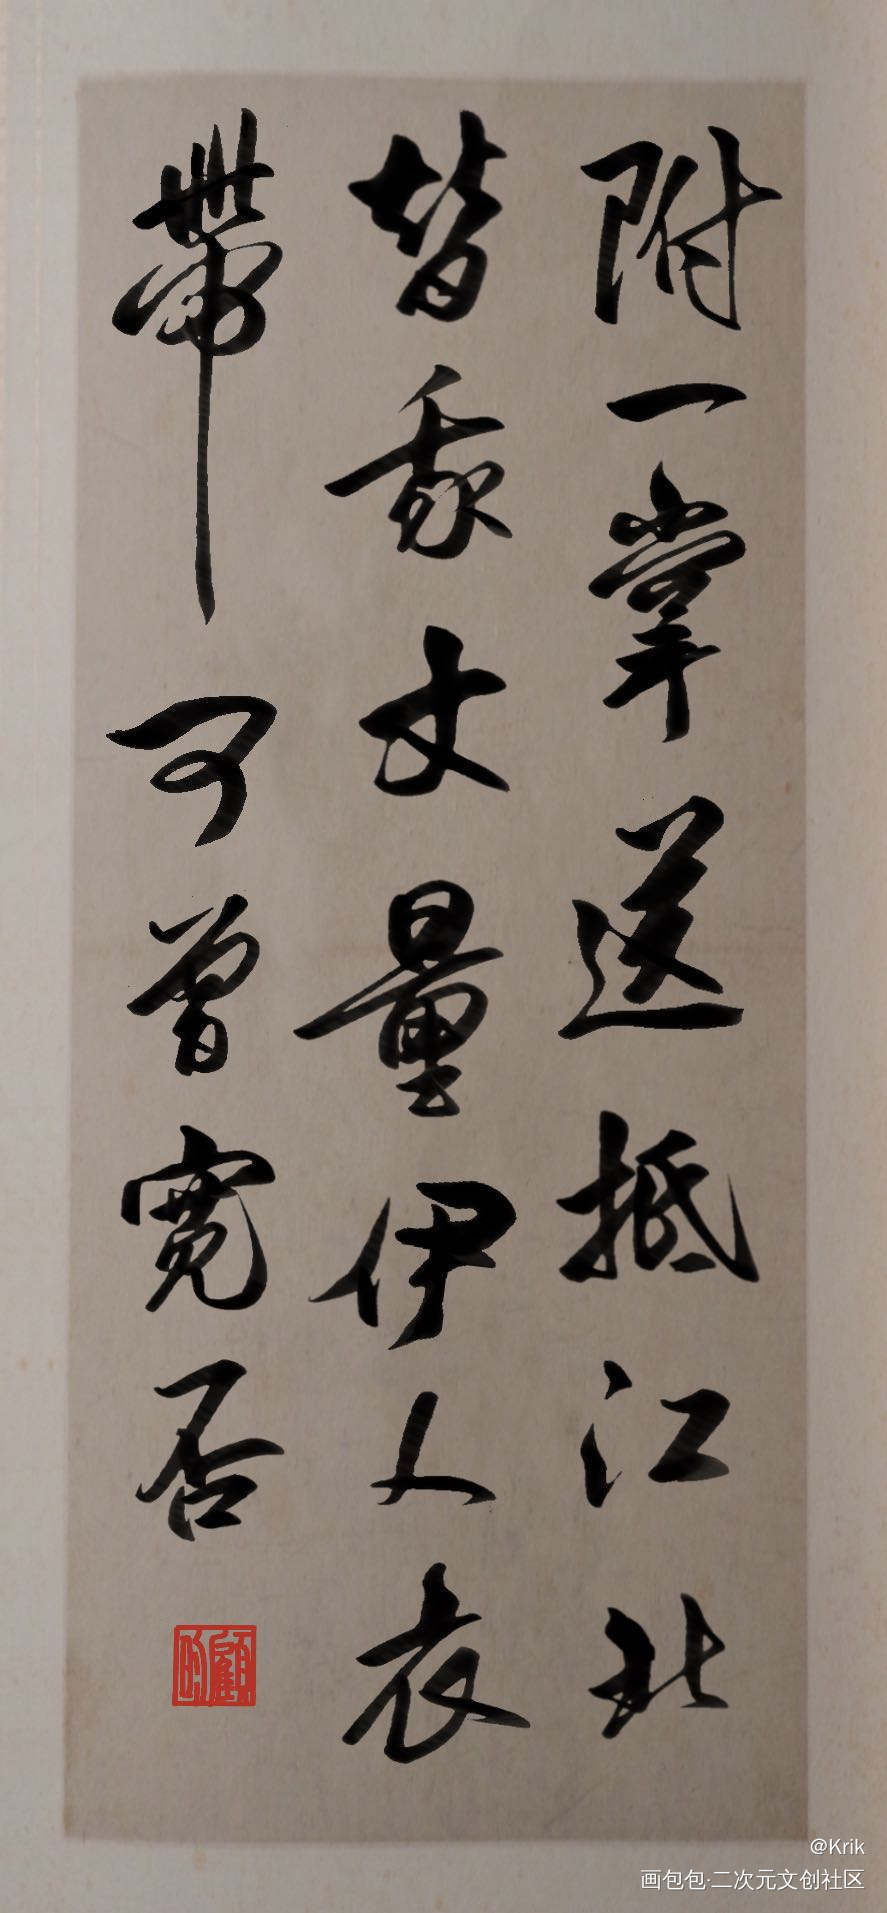 附一掌送抵江北
替我丈量伊人衣
帶可曾宽否
顧
@Krik
画包包·二次元文创社区